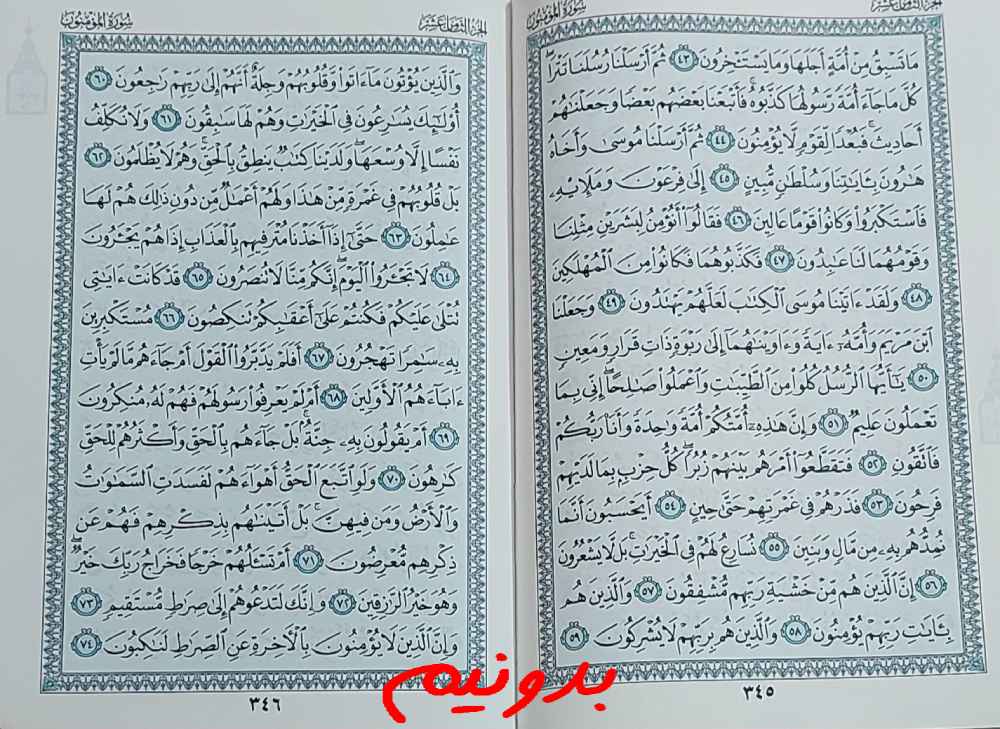 سورة المؤمنون
الجزء الثامن عشر
مَا تَسْبِقُ مِنْ أُمَّةٍ أَجَلَهَا وَمَا يَسْتَـْٔخِرُونَ ٤٣ ثُمَّ أَرْسَلْنَا رُسُلَنَا تَتْرَا ۖ
كُلَّ مَا جَآءَ أُمَّةً رَّسُولُهَا كَذَّبُوهُ ۚ فَأَتْبَعْنَا بَعْضَهُم بَعْضًا وَجَعَلْنَٰهُمْ
أَحَادِيثَ ۚ فَبُعْدًا لِّقَوْمٍ لَّا يُؤْمِنُونَ ٤٤ ثُمَّ أَرْسَلْنَا مُوسَىٰ وَأَخَاهُ
هَٰرُونَ بِـَٔايَٰتِنَا وَسُلْطَٰنٍ مُّبِينٍ ٤٥ إِلَىٰ فِرْعَوْنَ وَمَلَإِيهِۦ
فَٱسْتَكْبَرُوا۟ وَكَانُوا۟ قَوْمًا عَالِينَ ٤٦ فَقَالُوٓا۟ أَنُؤْمِنُ لِبَشَرَيْنِ مِثْلِنَا
وَقَوْمُهُمَا لَنَا عَٰبِدُونَ ٤٧ فَكَذَّبُوهُمَا فَكَانُوا۟ مِنَ ٱلْمُهْلَكِينَ
٤٨ وَلَقَدْ ءَاتَيْنَا مُوسَى ٱلْكِتَٰبَ لَعَلَّهُمْ يَهْتَدُونَ ٤٩ وَجَعَلْنَا
ٱبْنَ مَرْيَمَ وَأُمَّهُۥٓ ءَايَةً وَءَاوَيْنَٰهُمَآ إِلَىٰ رَبْوَةٍ ذَاتِ قَرَارٍ وَمَعِينٍ
٥٠ يَٰٓأَيُّهَا ٱلرُّسُلُ كُلُوا۟ مِنَ ٱلطَّيِّبَٰتِ وَٱعْمَلُوا۟ صَٰلِحًا ۖ إِنِّى بِمَا
تَعْمَلُونَ عَلِيمٌ ٥١ وَإِنَّ هَٰذِهِۦٓ أُمَّتُكُمْ أُمَّةً وَٰحِدَةً وَأَنَا۠ رَبُّكُمْ
فَٱتَّقُونِ ٥٢ فَتَقَطَّعُوٓا۟ أَمْرَهُم بَيْنَهُمْ زُبُرًا ۖ كُلُّ حِزْبٍۭ بِمَا لَدَيْهِمْ
فَرِحُونَ ٥٣ فَذَرْهُمْ فِى غَمْرَتِهِمْ حَتَّىٰ حِينٍ ٥٤ أَيَحْسَبُونَ أَنَّمَا
نُمِدُّهُم بِهِۦ مِن مَّالٍ وَبَنِينَ ٥٥ نُسَارِعُ لَهُمْ فِى ٱلْخَيْرَٰتِ ۚ بَل لَّا يَشْعُرُونَ
٥٦ إِنَّ ٱلَّذِينَ هُم مِّنْ خَشْيَةِ رَبِّهِم مُّشْفِقُونَ ٥٧ وَٱلَّذِينَ هُم
بِـَٔايَٰتِ رَبِّهِمْ يُؤْمِنُونَ ٥٨ وَٱلَّذِينَ هُم بِرَبِّهِمْ لَا يُشْرِكُونَ ٥٩
٣٤٥
الجزء الثامن عشر
سورة المؤمنون
وَٱلَّذِينَ يُؤْتُونَ مَآ ءَاتَوا۟ وَّقُلُوبُهُمْ وَجِلَةٌ أَنَّهُمْ إِلَىٰ رَبِّهِمْ رَٰجِعُونَ ٦٠
أُو۟لَٰٓئِكَ يُسَٰرِعُونَ فِى ٱلْخَيْرَٰتِ وَهُمْ لَهَا سَٰبِقُونَ ٦١ وَلَا نُكَلِّفُ
نَفْسًا إِلَّا وُسْعَهَا ۖ وَلَدَيْنَا كِتَٰبٌ يَنطِقُ بِٱلْحَقِّ ۚ وَهُمْ لَا يُظْلَمُونَ ٦٢
بَلْ قُلُوبُهُمْ فِى غَمْرَةٍ مِّنْ هَٰذَا وَلَهُمْ أَعْمَٰلٌ مِّن دُونِ ذَٰلِكَ هُمْ لَهَا
عَٰمِلُونَ ٦٣ حَتَّىٰٓ إِذَآ أَخَذْنَا مُتْرَفِيهِم بِٱلْعَذَابِ إِذَا هُمْ يَجْـَٔرُونَ
٦٤ لَا تَجْـَٔرُوا۟ ٱلْيَوْمَ ۖ إِنَّكُم مِّنَّا لَا تُنصَرُونَ ٦٥ قَدْ كَانَتْ ءَايَٰتِى
تُتْلَىٰ عَلَيْكُمْ فَكُنتُمْ عَلَىٰٓ أَعْقَٰبِكُمْ تَنكِصُونَ ٦٦ مُسْتَكْبِرِينَ
بِهِۦ سَٰمِرًا تَهْجُرُونَ ٦٧ أَفَلَمْ يَدَّبَّرُوا۟ ٱلْقَوْلَ أَمْ جَآءَهُم مَّا لَمْ يَأْتِ
ءَابَآءَهُمُ ٱلْأَوَّلِينَ ٦٨ أَمْ لَمْ يَعْرِفُوا۟ رَسُولَهُمْ فَهُمْ لَهُۥ مُنكِرُونَ
٦٩ أَمْ يَقُولُونَ بِهِۦ جِنَّةٌۢ ۚ بَلْ جَآءَهُم بِٱلْحَقِّ وَأَكْثَرُهُمْ لِلْحَقِّ
كَٰرِهُونَ ٧٠ وَلَوِ ٱتَّبَعَ ٱلْحَقُّ أَهْوَآءَهُمْ لَفَسَدَتِ ٱلسَّمَٰوَٰتُ
وَٱلْأَرْضُ وَمَن فِيهِنَّ ۚ بَلْ أَتَيْنَٰهُم بِذِكْرِهِمْ فَهُمْ عَن
ذِكْرِهِم مُّعْرِضُونَ ٧١ أَمْ تَسْـَٔلُهُمْ خَرْجًا فَخَرَاجُ رَبِّكَ خَيْرٌ ۖ
وَهُوَ خَيْرُ ٱلرَّٰزِقِينَ ٧٢ وَإِنَّكَ لَتَدْعُوهُمْ إِلَىٰ صِرَٰطٍ مُّسْتَقِيمٍ ٧٣
وَإِنَّ ٱلَّذِينَ لَا يُؤْمِنُونَ بِٱلْأَخِرَةِ عَنِ ٱلصِّرَٰطِ لَنَٰكِبُونَ ٧٤
٣٤٦
بدونيم